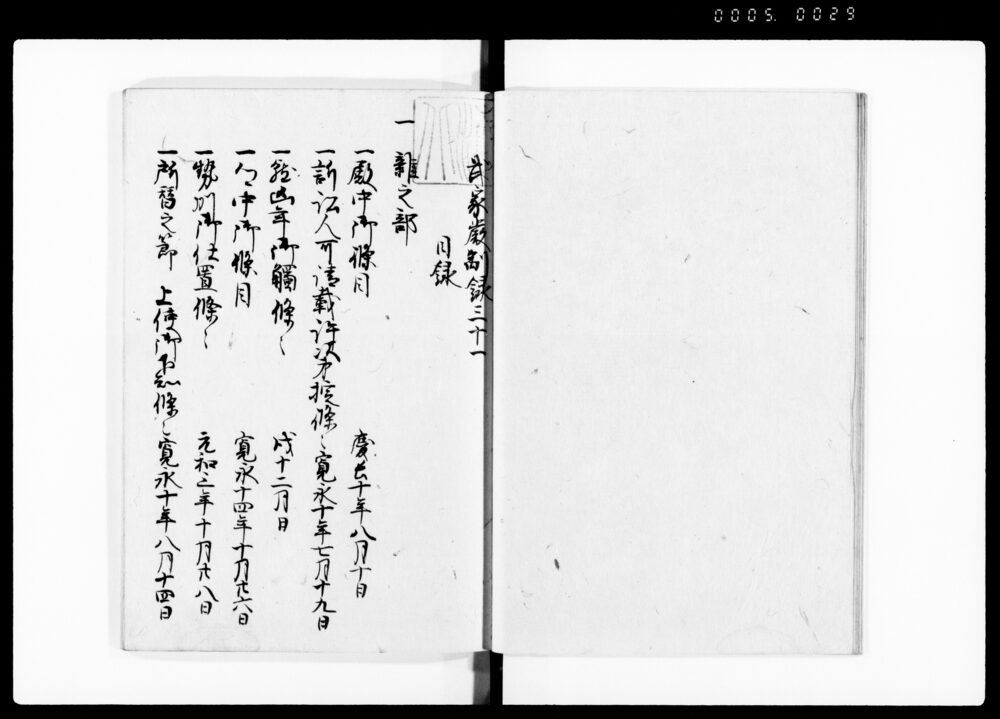 0005. 0029
武家嚴制録三十一
目録
一 雜之部
一殿中御條目 慶長十年八月十日
一訴訟人可請載許次才掟條々 寛永十年七月十九日
一就凶年御觸條々 戌十二月日
一江戸中御條目 寛永十四年十月廿六日
一勢州御仕置條々 元和三年十月廿八日
一所替之節 上使御下知條々 寛永十年八月十四日